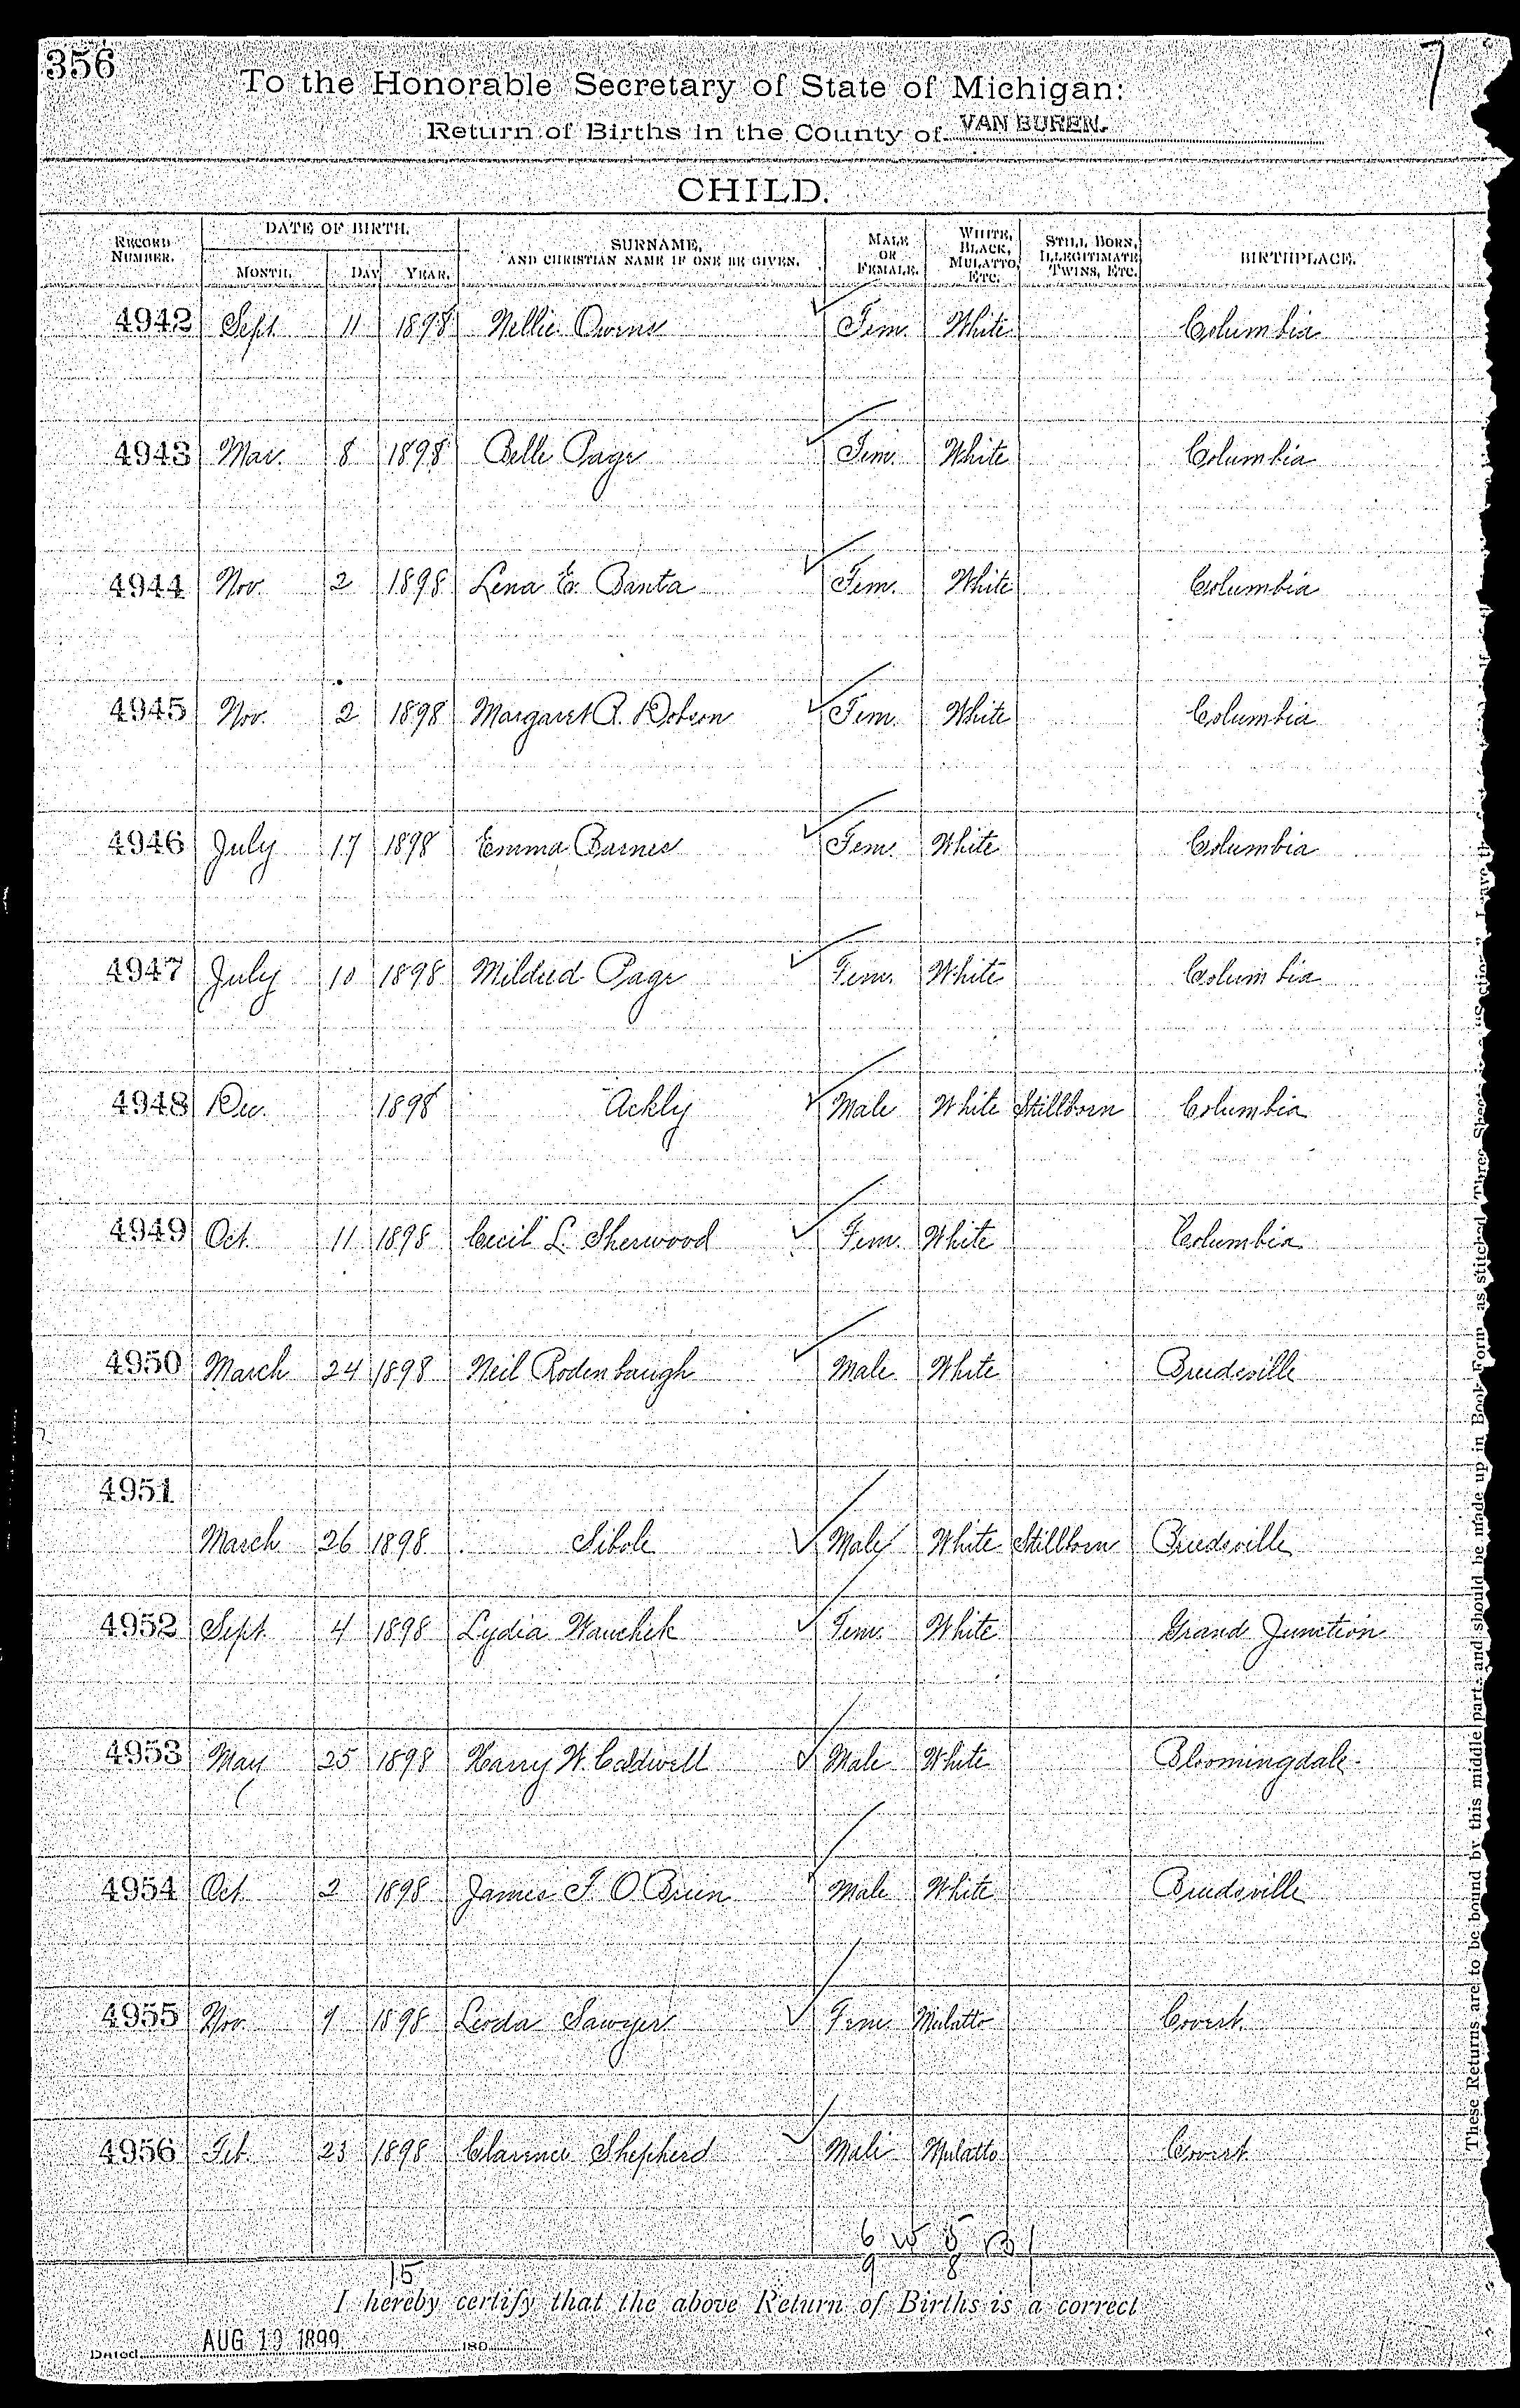 356
7
To the Honorable Secretary of State of Michigan:
Return of Births in the County of VAN BUREN.
CHILD.
RECORD NUMBER. DATE OF BIRTH. MONTH. DAY YEAR. SURNAME, AND CHRISTIAN NAME IF ONE BE GIVEN. MALE OR FEMALE. WHITE, BLACK, MULATTO, ETC. STILL BORN, ILLEGITIMATE, TWINS, ETC. BIRTHPLACE.
4942 Sept. 11 1898 Nellie Owens Fem. White Columbia
4943 Mar. 8 1898 Belle Page Fem. White Columbia
4944 Nov. 2 1898 Lena E. Banta Fem. White Columbia
4945 Nov. 2 1898 Margaret R. Dobson Fem. White Columbia
4946 July 17 1898 Emma Barnes Fem. White Columbia
4947 July 10 1898 Mildred Page Fem. White Columbia
4948 Dec. 1898 Ackly Male White Stillborn Columbia
4949 Oct. 11 1898 Cecil L. Sherwood Fem. White Columbia
4950 March 24 1898 Neil Rodenbaugh Male White Breedsville
4951
March 26 1898 Sibole Male White Stillborn Breedsville
4952 Sept 4 1898 Lydia Wauchek Fem. White Grand Junction
4953 May 25 1898 Harry W. Caldwell Male White Bloomingdale
4954 Oct. 2 1898 James F. O Brien Male White Breedsville
4955 Nov. 9 1898 Leoda Sawyer Fem Mulatto Covert.
4956 Feb. 23 1898 Clarence Shepherd Male Mulatto Covert.
6 W 5 B 1
15 9 8 1
I hereby certify that the above Return of Births is a correct
Dated AUG 19 1899 189
These Returns are to be bound by this middle part, and should be made up in Book Form as stitched. Three